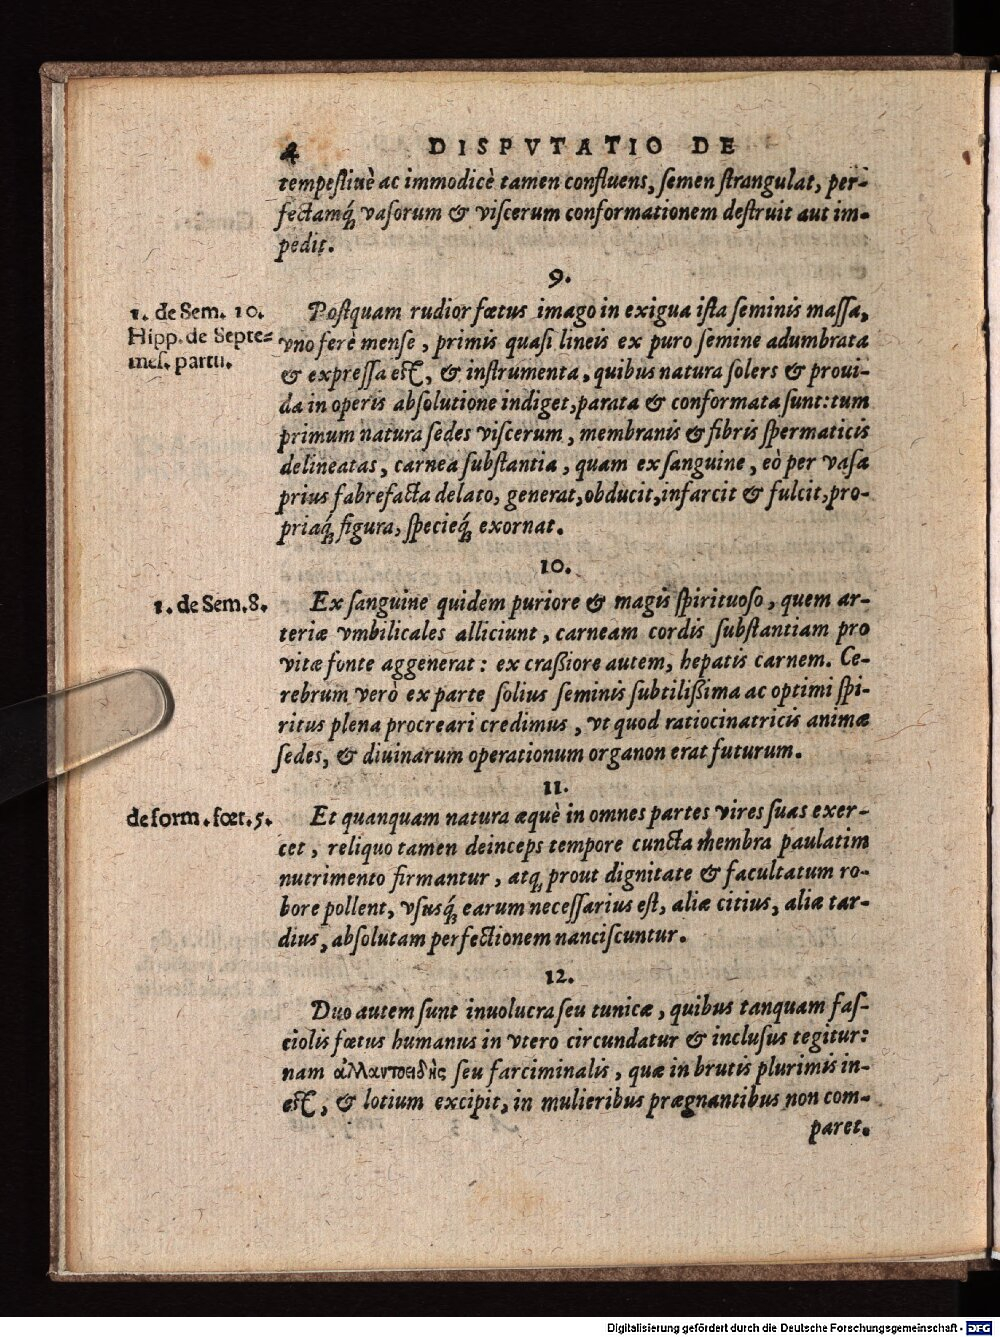 4 DISPVTATIO DE
tempeſtiuè ac immodicè tamen confluens, ſemen ſtrangulat, per-
fectamq́; vaſorum & viſcerum conformationem deſtruit aut im-
pedit.
9.
1. de Sem. 10.
Hipp. de Septe-
meſ. partu.
Poſtquam rudior fœtus imago in exigua iſta ſeminis maſſa,
vno ferè menſe, primis quaſi lineis ex puro ſemine adumbrata
& expreſſa eſt, & inſtrumenta, quibus natura ſolers & proui-
da in operis abſolutione indiget, parata & conformata ſunt: tum
primum natura ſedes viſcerum, membranis & fibris ſpermaticis
delineatas, carnea ſubſtantia, quam ex ſanguine, eò per vaſa
prius fabrefacta delato, generat, obducit, infarcit & fulcit, pro-
priaq́; figura, ſpecieq́; exornat.
10.
1. de Sem. 8.
Ex ſanguine quidem puriore & magis ſpirituoſo, quem ar-
teriæ vmbilicales alliciunt, carneam cordis ſubſtantiam pro
vitæ fonte aggenerat: ex craßiore autem, hepatis carnem. Ce-
rebrum verò ex parte ſolius ſeminis ſubtilißima ac optimi ſpi-
ritus plena procreari credimus, vt quod ratiocinatricis animæ
ſedes, & diuinarum operationum organon erat futurum.
11.
de form. fœt. 5.
Et quanquam natura æquè in omnes partes vires ſuas exer-
cet, reliquo tamen deinceps tempore cuncta membra paulatim
nutrimento firmantur, atq; prout dignitate & facultatum ro-
bore pollent, vſusq́; earum neceſſarius eſt, aliæ citius, aliæ tar-
dius, abſolutam perfectionem nanciſcuntur.
12.
Duo autem ſunt inuolucra ſeu tunicæ, quibus tanquam faſ-
ciolis fœtus humanus in vtero circundatur & incluſus tegitur:
nam ἀλλαντοειδὴς ſeu farciminalis, quæ in brutis plurimis in-
eſt, & lotium excipit, in mulieribus prægnantibus non com-
paret.
Digitalisierung gefördert durch die Deutsche Forschungsgemeinschaft - DFG